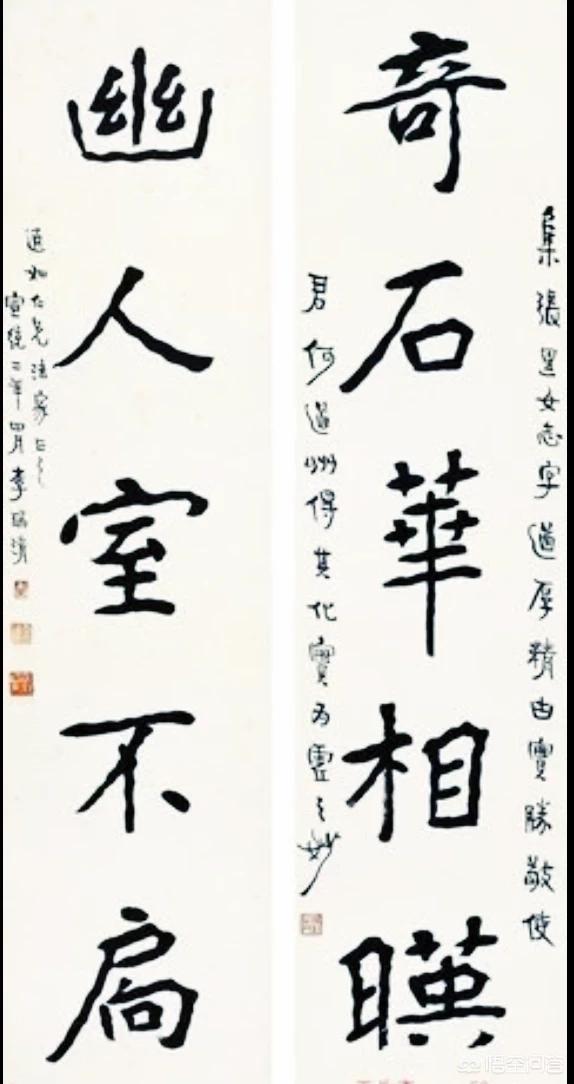 集張黑女志字遒厚精古實勝敬使
奇石華相暎
君何道州得其化實為虛之妙
幽人室不扃
如仁兄法家正之
宣統二年四月李瑞清
悟空问答